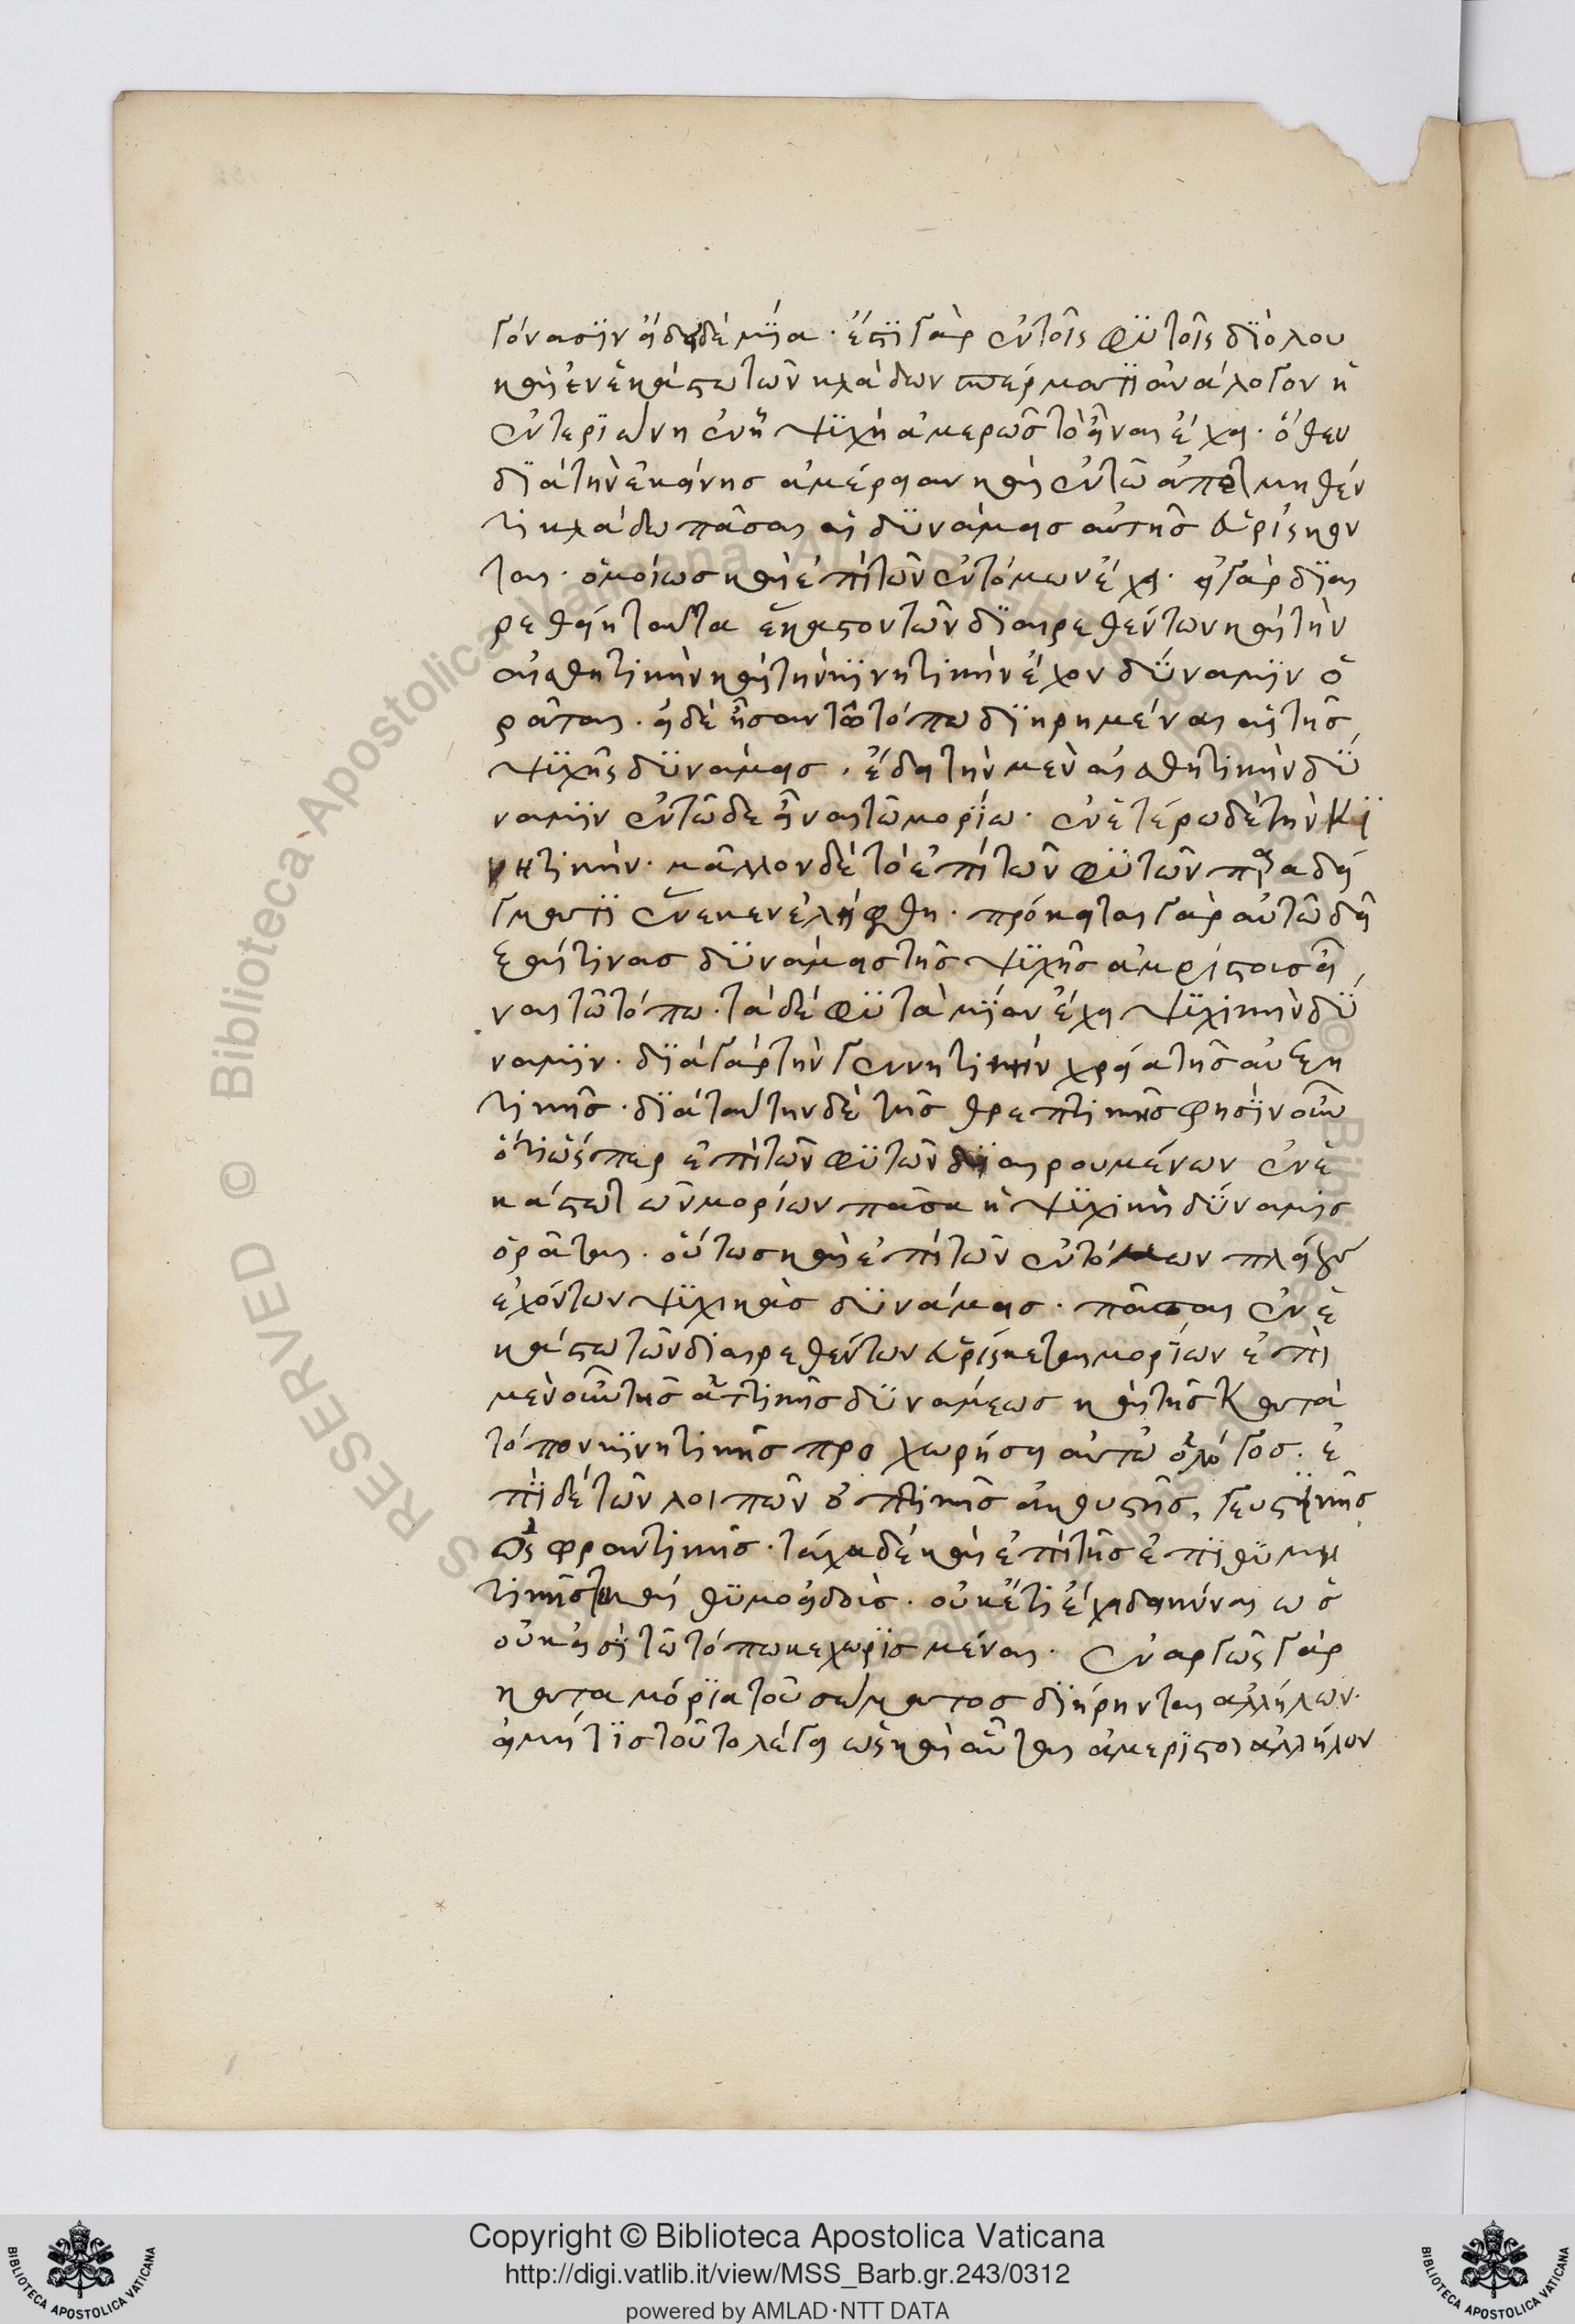 γόνασϊν εἴδεδὲ μΐα · ἔστϊ γὰρ ἐν τοῖς φϋτοῖς δϊόλου
καὶ ἐν ἑκάστω τῶν κλάδων σπέρματϊ ἀνάλογον ἡ
ἐντεριώνη ἐν ἧ ψϋχὴ ἀμερῶς τὸ εἶναι ἔχει · ὅθεν
δϊὰ τὴν ἐκείνης ἀμέρειαν καὶ ἐν τῶ ἀποτμηθέν
τι κλάδω πᾶσαι αἱ δϋνάμεις αὐτῆς εὑρίσκον
ται · ὁμοίως καὶ ἐπὶ τῶν ἐντόμων ἔχει · εἰ γὰρ δϊαι
ρεθείη ταῦτα ἕκαστον τῶν δϊαιρεθέντων καὶ τὴν
αἰσθητικὴν καὶ τὴν κϊνητικὴν ἔχον δΰναμϊν ὁ
ρᾶται · εἰ δὲ ἦσαν τῶ τόπω δϊηρημέναι αἱ τῆς
ψϋχῆς δϋνάμεις · ἔδει τὴν μὲν αἰσθητικὴν δΰ
ναμϊν ἐν τῶδε εἶναι τῶ μορΐω · ἐν ἑτέρω δὲ τὴν κϊ
νητικήν · μᾶλλον δὲ τὸ ἐπὶ τῶν φϋτῶν παραδεί
γματϊ ἕνεκεν ἐλήφθη · πρόκειται γὰρ αὐτῶ δεῖ
ξαί τινας δϋνάμεις τῆς ψϋχῆς ἀμερίστοις εἶ
ναι τῶ τόπω · τὰ δὲ φϋτὰ μΐαν ἔχει ψϋχικὴν δΰ
ναμϊν · δϊὰ γὰρ τὴν γεννητικὴν χρεία τῆς αὐξη
τικῆς · δϊὰ ταύτην δὲ τῆς θρεπτικῆς φησὶν οὖν
ὅτι ὥσπερ ἐπὶ τῶν φϋτῶν δϊαιρουμένων ἐν ἑ
κάστω τῶν μορίων πᾶσα ἡ ψϋχικὴ δΰναμις
ὁρᾶται · οὕτως καὶ ἐπὶ τῶν ἐντόμων πλείους
ἐχόντων ψϋχικὰς δϋνάμεις · πᾶσαι ἐν ἑ
κάστω τῶν διαιρεθέντων εὑρίσκεται μορΐων ἐπὶ
μὲν οὖν τῆς ἁπτικῆς δϋνάμεως καὶ τῆς κατὰ
τόπον κϊνητικῆς προχωρήσει αὐτῶ ὁ λόγος · ἐ
πὶ δὲ τῶν λοιπῶν ὀπτικῆς ἀκουστῆς, γευστϊκῆς
ὀσφραντικῆς · τάχα δὲ καὶ ἐπὶ τῆς ἐπϊθϋμη
τικῆς καὶ θϋμοειδοῦς · οὐκέτι ἔχει δεικνύναι ὡς
οὐκ εἰσὶ τῶ τόπω κεχωρϊσμέναι · ἐναργῶς γὰρ
κατα μόρϊα τοῦ σώματος δϊήρηνται ἀλλήλων ·
εἰ μή τϊς τοῦτο λέγει ὡς καὶ αὗται ἀμερϊστοι ἀλλήλων
Copyright © Biblioteca Apostolica Vaticana
http://digi.vatlib.it/view/MSS_Barb.gr.243/0312
powered by AMLAD·NTT DATA